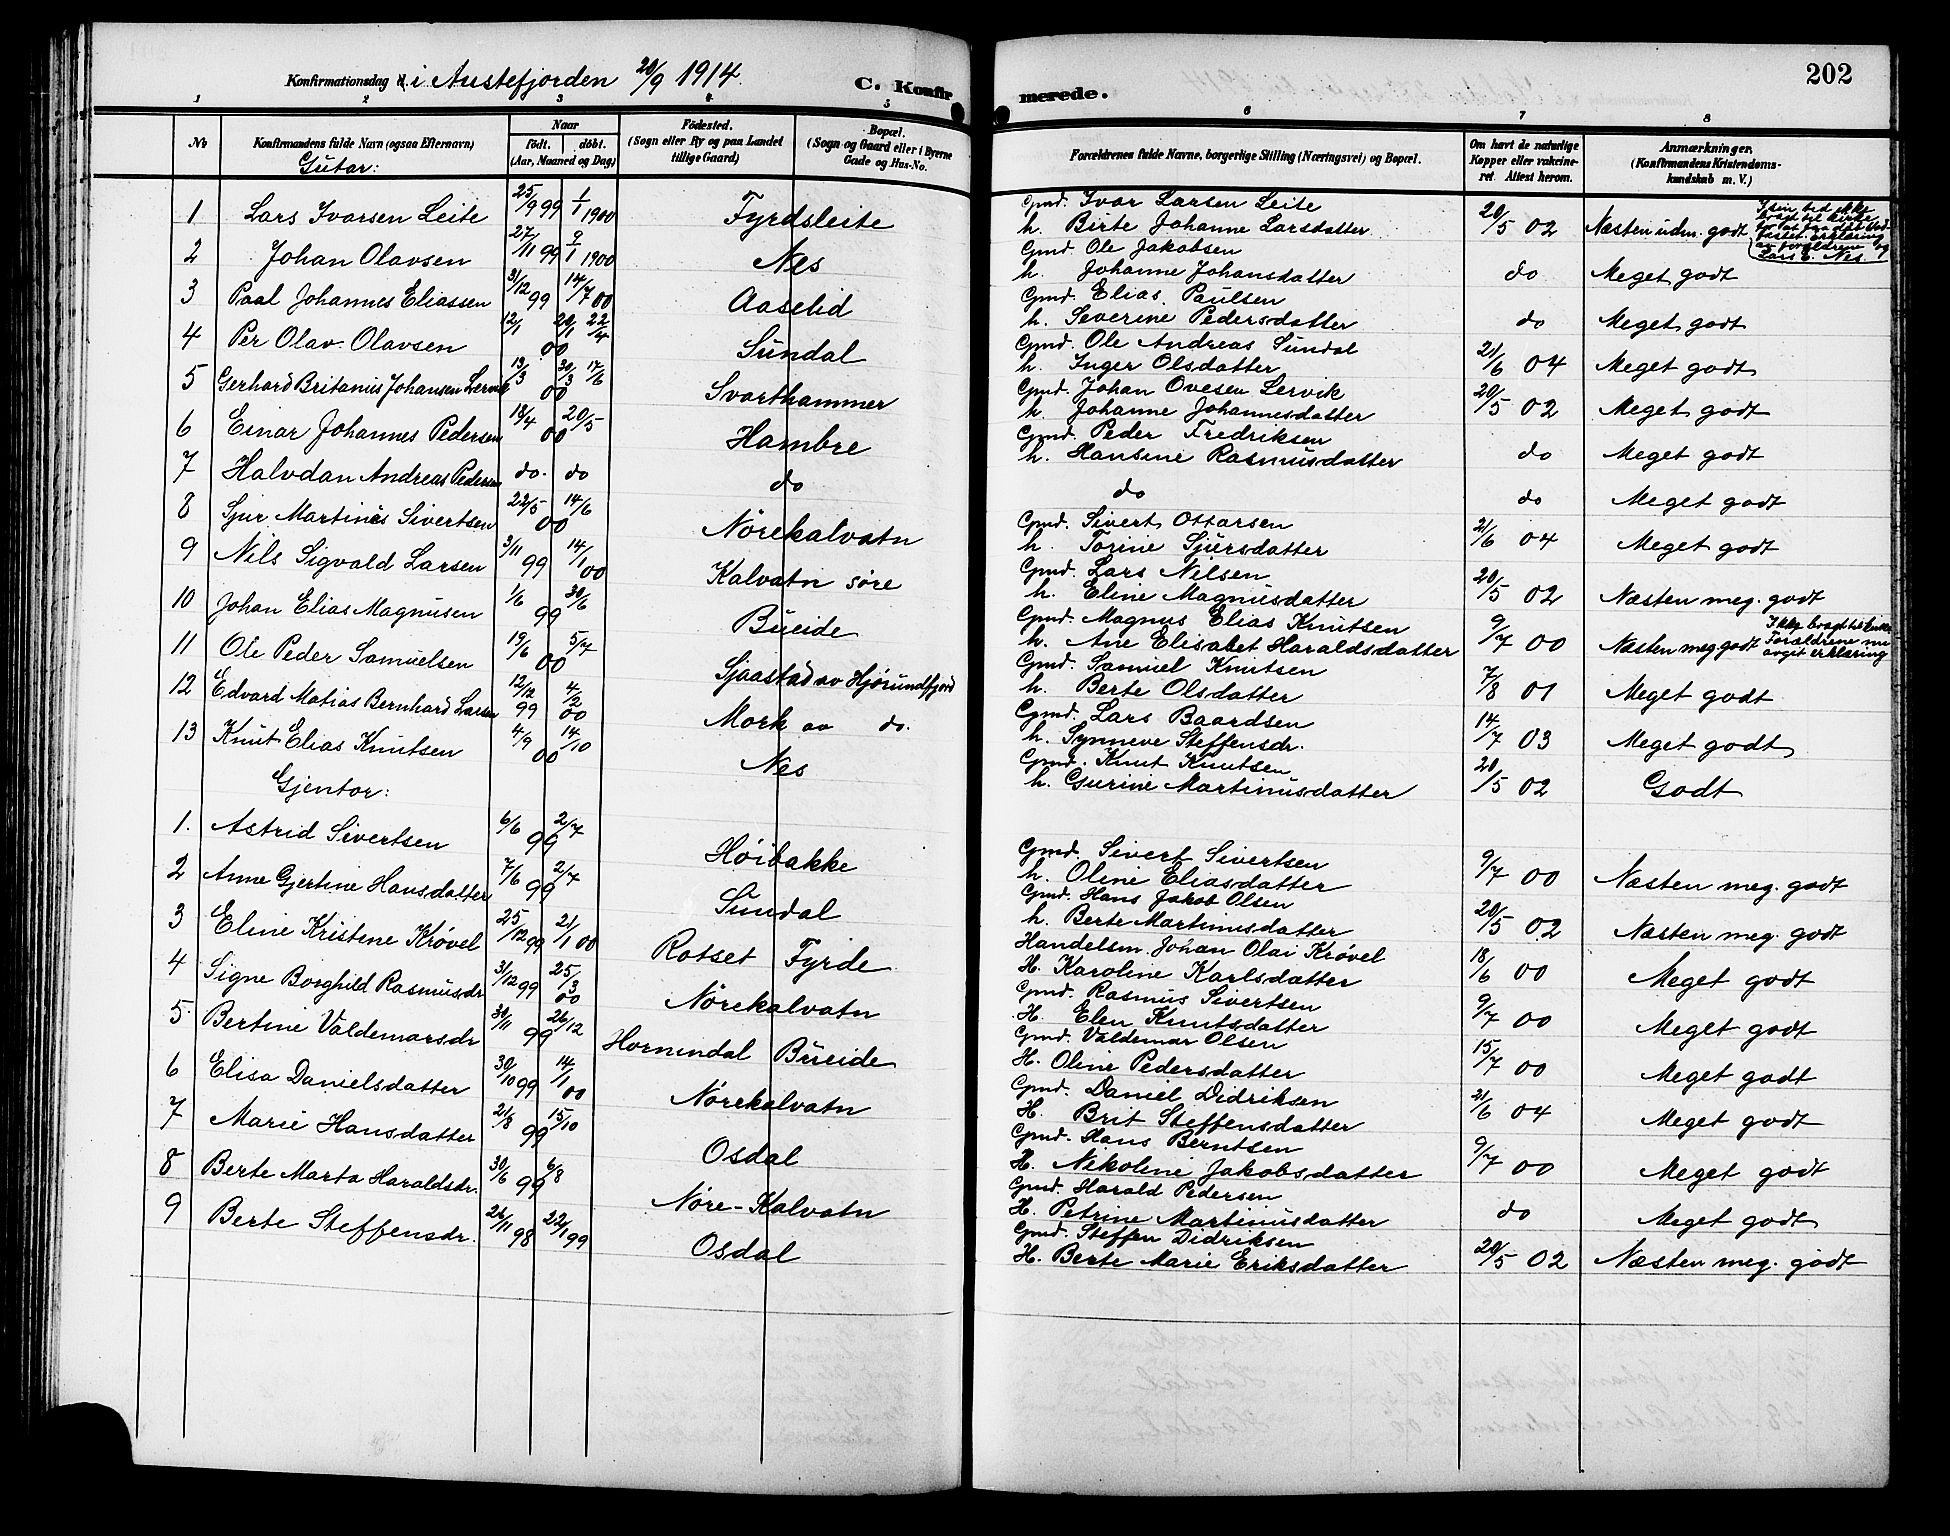 Konfirmationsdag i Austefjorden 20/9 1914. C. Konfir merede. 202
1 2 3 4 5 6 7 8
No
Konfirmandens fulde Navn (ogsaa Efternavn)
Naar
født. døbt.
(Aar, Maaned og Dag)
Fødested.
(Sogn eller By og paa Landet
tillige Gaard)
Bopæl.
(Sogn og Gaard eller i Byerne
Gade og Hus-No.
Forældrenes fulde Navne, borgerlige Stilling (Næringsvei) og Bopæl.
Om havt de naturlige
Kopper eller vakcine-
ret. Attest herom.
Anmærkninger.
(Konfirmandens Kristendoms-
kundskab m. V.)
Gutar:
1 Lars Ivarsen Leite 25/9 99 1/1 1900 Fyrdsleite Gmd. Ivar Larsen Leite
h. Birte Johanne Larsdatter 20/5 02 Næsten udm. godt
2 Johan Olavsen 27/11 99 9/1 1900 Nes Gmd. Ole Jakobsen
h. Johanne Johansdatter do Meget godt
3 Paal Johannes Eliassen 31/12 99 14/7 00 Aaselid Gmd. Elias Paulsen
h. Severine Pedersdatter do Meget godt
4 Per Olav Olavsen 12/1 00 20/1 22/4 Sundal Gmd. Ole Andreas Sundal
h. Inger Olsdatter 21/6 04 Meget godt
5 Gerhard Britanius Johansen Lervik 13/3 00 30/3 17/6 Svarthammer Gmd. Johan Ovesen Lervik
h. Johanne Johannesdatter 20/5 02 Meget godt
6 Einar Johannes Pedersen 18/4 00 20/5 Hambre Gmd. Peder Fredriksen
h. Hansine Rasmusdatter do Meget godt
7 Halvdan Andreas Pedersen do. do do do do Meget godt
8 Sjur Martinus Sivertsen 22/5 00 14/6 Nørekalvatn Gmd. Sivert Ottarsen
h. Torine Sjursdatter 21/6 04 Meget godt
9 Nils Sigvald Larsen 3/11 99 14/1 00 Kalvatn søre Gmd. Lars Nilsen
h. Eline Magnusdatter 20/5 02 Næsten meg. godt
10 Johan Elias Magnusen 1/6 99 30/6 Bueide Gmd. Magnus Elias Knutsen
h. Ane Elisabet Haraldsdatter 9/7 00 Næsten meg. godt
11 Ole Peder Samuelsen 19/6 00 5/7 Sjaastad av Hjørundfjord Gmd. Samuel Knutsen
h. Berte Olsdatter 7/8 01 Meget godt
12 Edvard Matias Bernhard Larsen 12/12 99 4/2 00 Mork av do. Gmd. Lars Baardsen
h. Synneve Steffensdr. 14/7 03 Meget godt
13 Knut Elias Knutsen 4/9 00 14/10 Nes Gmd. Knut Knutsen
h. Gurine Martinusdatter 20/5 02 Godt
Gjentor:
1. Astrid Sivertsen 6/6 99 2/7 Høibakke Gmd. Sivert Sivertsen
h. Oline Eliasdatter 9/7 00 Næsten meg. godt
2 Anne Gjertine Hansdatter 7/6 99 2/7 Sundal Gmd. Hans Jakob Olsen
h. Berte Martinusdatter 20/5 02 Næsten meg. godt
3 Eline Kristene Krøvel 25/12 99 21/1 00 Rotset Fyrde Handelsm. Johan Olai Krøvel
H. Karoline Karlsdatter 18/6 00 Meget godt
4 Signe Borghild Rasmusdr 31/12 99 25/3 00 Nørekalvatn Gmd. Rasmus Sivertsen
H. Elen Knutsdatter 9/7 00 Meget godt
5. Bertine Valdemarsdr 30/11 99 26/12 Hornindal Bueide Gmd. Valdemar Olsen
H. Oline Pedersdatter 15/7 00 Meget godt
6 Elisa Danielsdatter 30/10 99 14/1 00 Nørekalvatn Gmd. Daniel Didriksen
H. Brit Steffensdatter 21/6 04 Meget godt
7 Marie Hansdatter 21/8 99 15/10 Osdal Gmd. Hans Berntsen
H. Nikoline Jakobsdatter 9/7 00 Meget godt
8 Berte Marta Haraldsdr. 30/6 99 6/8 Nøre-Kalvatn Gmd. Harald Pedersen
H. Petrine Martinusdatter do Meget godt
9 Berte Steffensdr. 26/11 98 22/1 99 Osdal Gmd. Steffen Didriksen
H. Berte Marie Eriksdatter 20/5 02 Næsten meg. godt